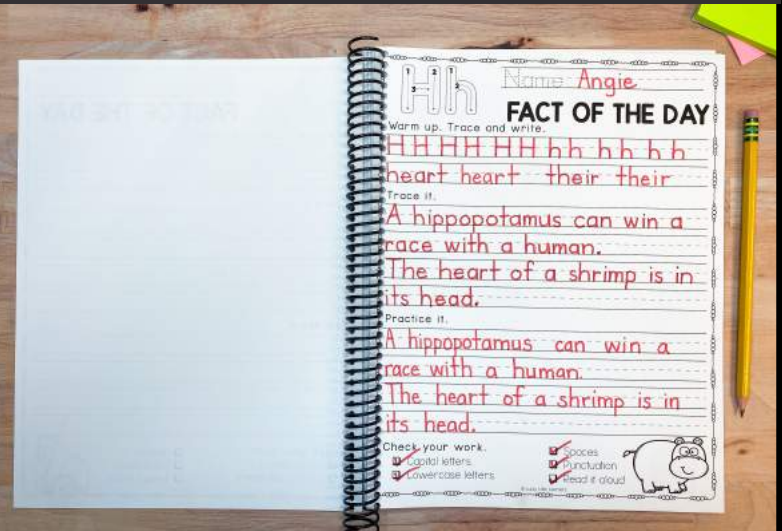 Hh
Name Angie
FACT OF THE DAY
Warm up. Trace and write.
HH HH HH hh hh hh
heart heart their their
Trace it.
A hippopotamus can win a
race with a human.
The heart of a shrimp is in
its head.
Practice it.
A hippopotamus can win a
race with a human.
The heart of a shrimp is in
its head.
Check your work.
Capital letters
Lowercase letters
Spaces
Punctuation
Read it aloud